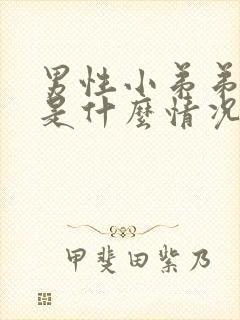 男性小弟弟
是什麼情况
甲斐田紫乃